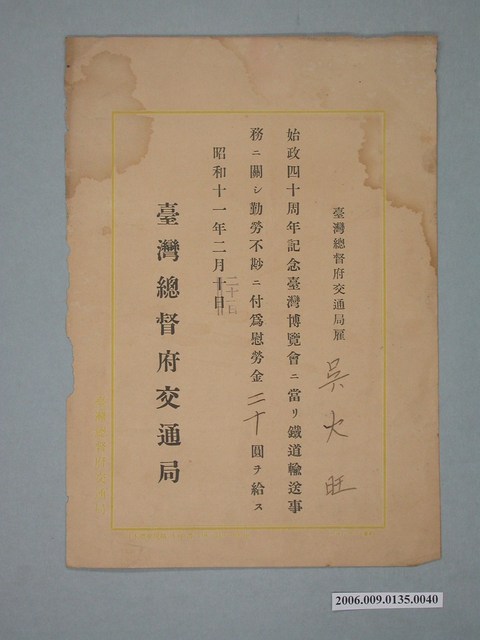 臺灣總督府交通局雇
吳火旺
始政四十周年記念臺灣博覽會ニ當リ鐵道輸送事
務ニ關シ勤勞不尠ニ付爲慰勞金二十圓ヲ給ス
昭和十一年二月十日
二十一日
臺灣總督府交通局
2006.009.0135.0040